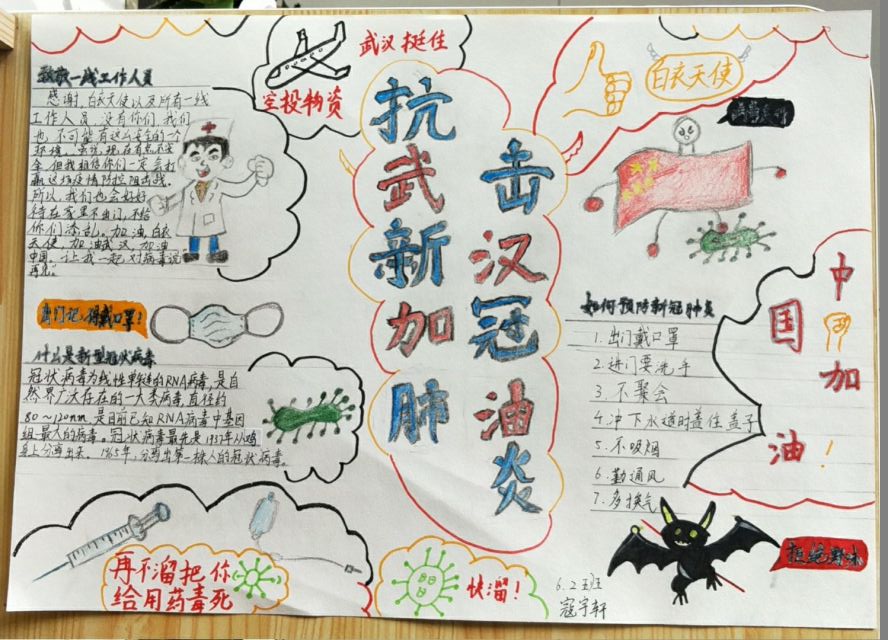 武汉挺住
空投物资
致敬一线工作人员
感谢,白衣天使以及所有一线
工作人员,没有你们,我们
也不可能有这么安全的一个
环境,虽说现在有点不安
全,但我相信你们一定会打
赢这场疫情防控阻击战。
所以,我们也会好好
待在家里不出门,不给
你们添乱。加油,白衣
天使,加油武汉,加油
中国,让我一起对病毒说
再见"
出门记得戴口罩!
什么是新型冠状病毒
冠状病毒为线性单链的RNA病毒,是自
然界广大存在的一大类病毒,直径约
80~120nm.是目前已知RNA病毒中基因
组最大的病毒。冠状病毒最先是1937年从鸡
身上分离出来。1965年,分离出第一株人的冠状病毒。
再不溜把你
给用药毒死
抗击
武汉
新冠
加油
肺炎
快溜!
白衣天使
如何预防新冠肺炎
1.出门戴口罩
2.进门要洗手
3.不聚会
4.冲下水道时盖住盖子
5.不吸烟
6.勤通风
7.多换气
中国加油!
拒绝野味
6.2班
寇宇轩